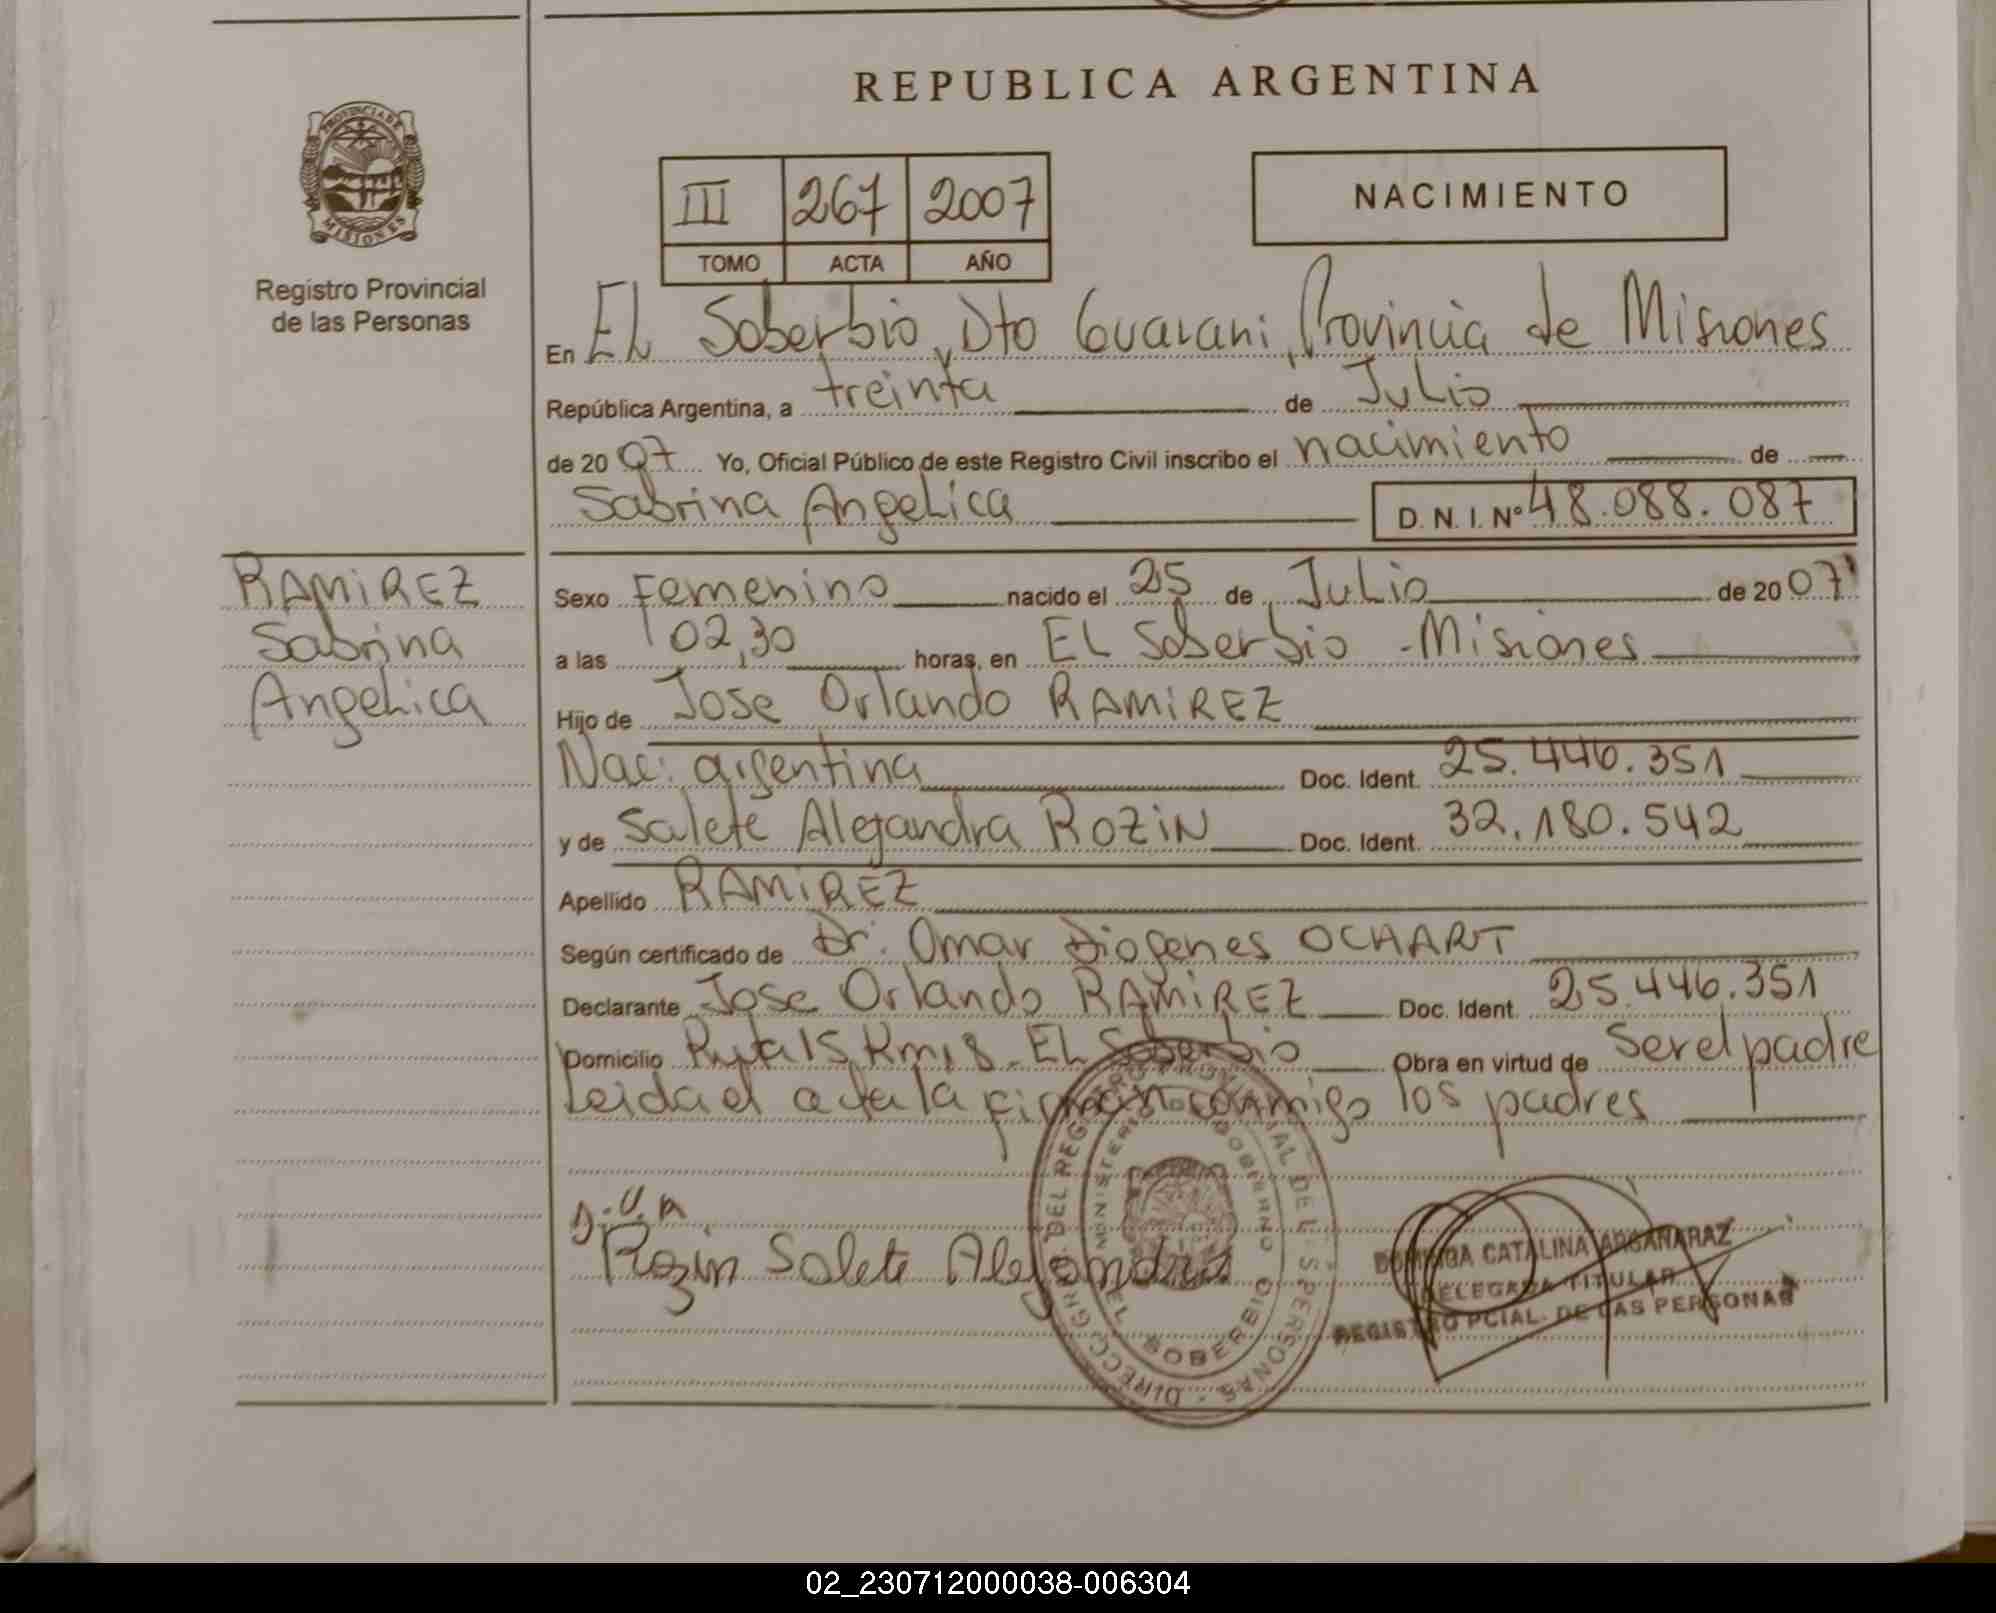 REPUBLICA ARGENTINA
PROVINCIA DE
MISIONES
Registro Provincial
de las Personas
III 267 2007
TOMO ACTA AÑO
NACIMIENTO
En EL Soberbio, Dto Guarani, Provincia de Misiones
República Argentina, a treinta de Julio
de 2007 Yo, Oficial Público de este Registro Civil inscribo el nacimiento de
Sabrina Angelica D. N. I. Nº 48.088.087
RAMIREZ
Sabrina
Angelica
Sexo Femenino nacido el 25 de Julio de 2007
a las 02,30 horas, en EL Soberbio - Misiones
Hijo de Jose Orlando RAMIREZ
Nac: argentina Doc. Ident. 25.446.351
y de Salete Alejandra ROZIN Doc. Ident. 32.180.542
Apellido RAMIREZ
Según certificado de Dr. Omar Diogenes OCHART
Declarante Jose Orlando RAMIREZ Doc. Ident. 25.446.351
Domicilio Ruta 15 Km 18 - EL Soberbio Obra en virtud de Ser el padre
Leida el acta la firman conmigo los padres
Rozin Salete Alejandra
DIRECC. GRAL. DEL REGISTRO PROVINCIAL DE LAS PERSONAS
MINISTERIO GOBIERNO
EL SOBERBIO
DOMINGA CATALINA ARGAÑARAZ
DELEGADA TITULAR
REGISTRO PCIAL. DE LAS PERSONAS
02_230712000038-006304